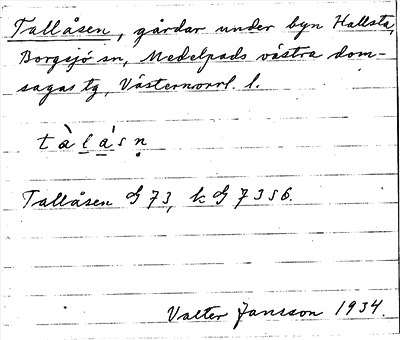 Tallåsen, gårdar under byn Hallsta,
Borgsjö sn, Medelpads västra dom-
sagas tg, Västernorrl. l.
tàlåsn
Tallåsen G 73, k G 7356.
Valter Jansson 1934.